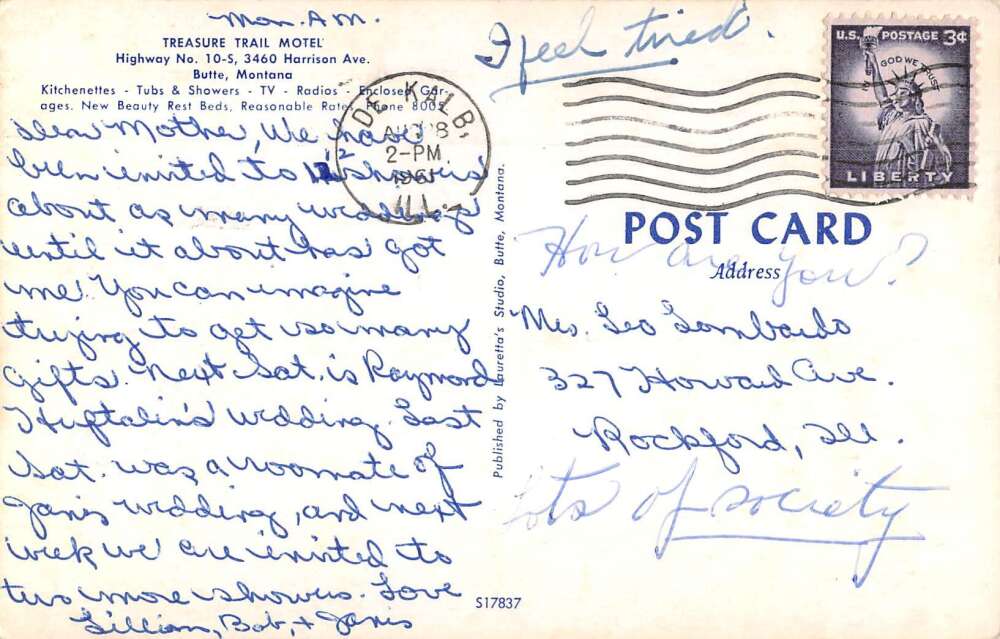 Mon. A.M.
TREASURE TRAIL MOTEL
Highway No. 10-S, 3460 Harrison Ave.
Butte, Montana
Kitchenettes - Tubs & Showers - TV - Radios - Enclosed Gar-
ages. New Beauty Rest Beds, Reasonable Rates, Phone 8005
Dear Mother, We have
been invited to 12 showers
about as many weddings
until it about has got
me. You can imagine
trying to get so many
gifts. Next Sat. is Raymond
Huftalin's wedding. Last
Sat. was a roomate of
Janis wedding, and next
week we are invited to
two more showers. Love
Lillian, Bob, + Janis
I feel tired.
DE KALB,
2-PM
1961
ILL.
U.S. POSTAGE 3¢
IN GOD WE TRUST
LIBERTY
POST CARD
Address
How are you?
Mrs. Leo Lombardo
327 Howard Ave.
Rockford, Ill.
Lots of society
Published by Lauretta's Studio, Butte, Montana.
S17837